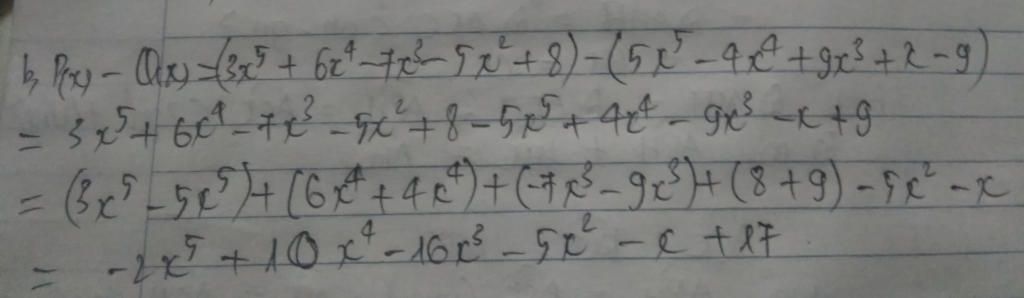 b, P(x) - Q(x) = (3x⁵ + 6x⁴ - 7x³ - 5x² + 8) - (5x⁵ - 4x⁴ + 9x³ + x - 9)
= 3x⁵ + 6x⁴ - 7x³ - 5x² + 8 - 5x⁵ + 4x⁴ - 9x³ - x + 9
= (3x⁵ - 5x⁵) + (6x⁴ + 4x⁴) + (-7x³ - 9x³) + (8 + 9) - 5x² - x
= -2x⁵ + 10x⁴ - 16x³ - 5x² - x + 17